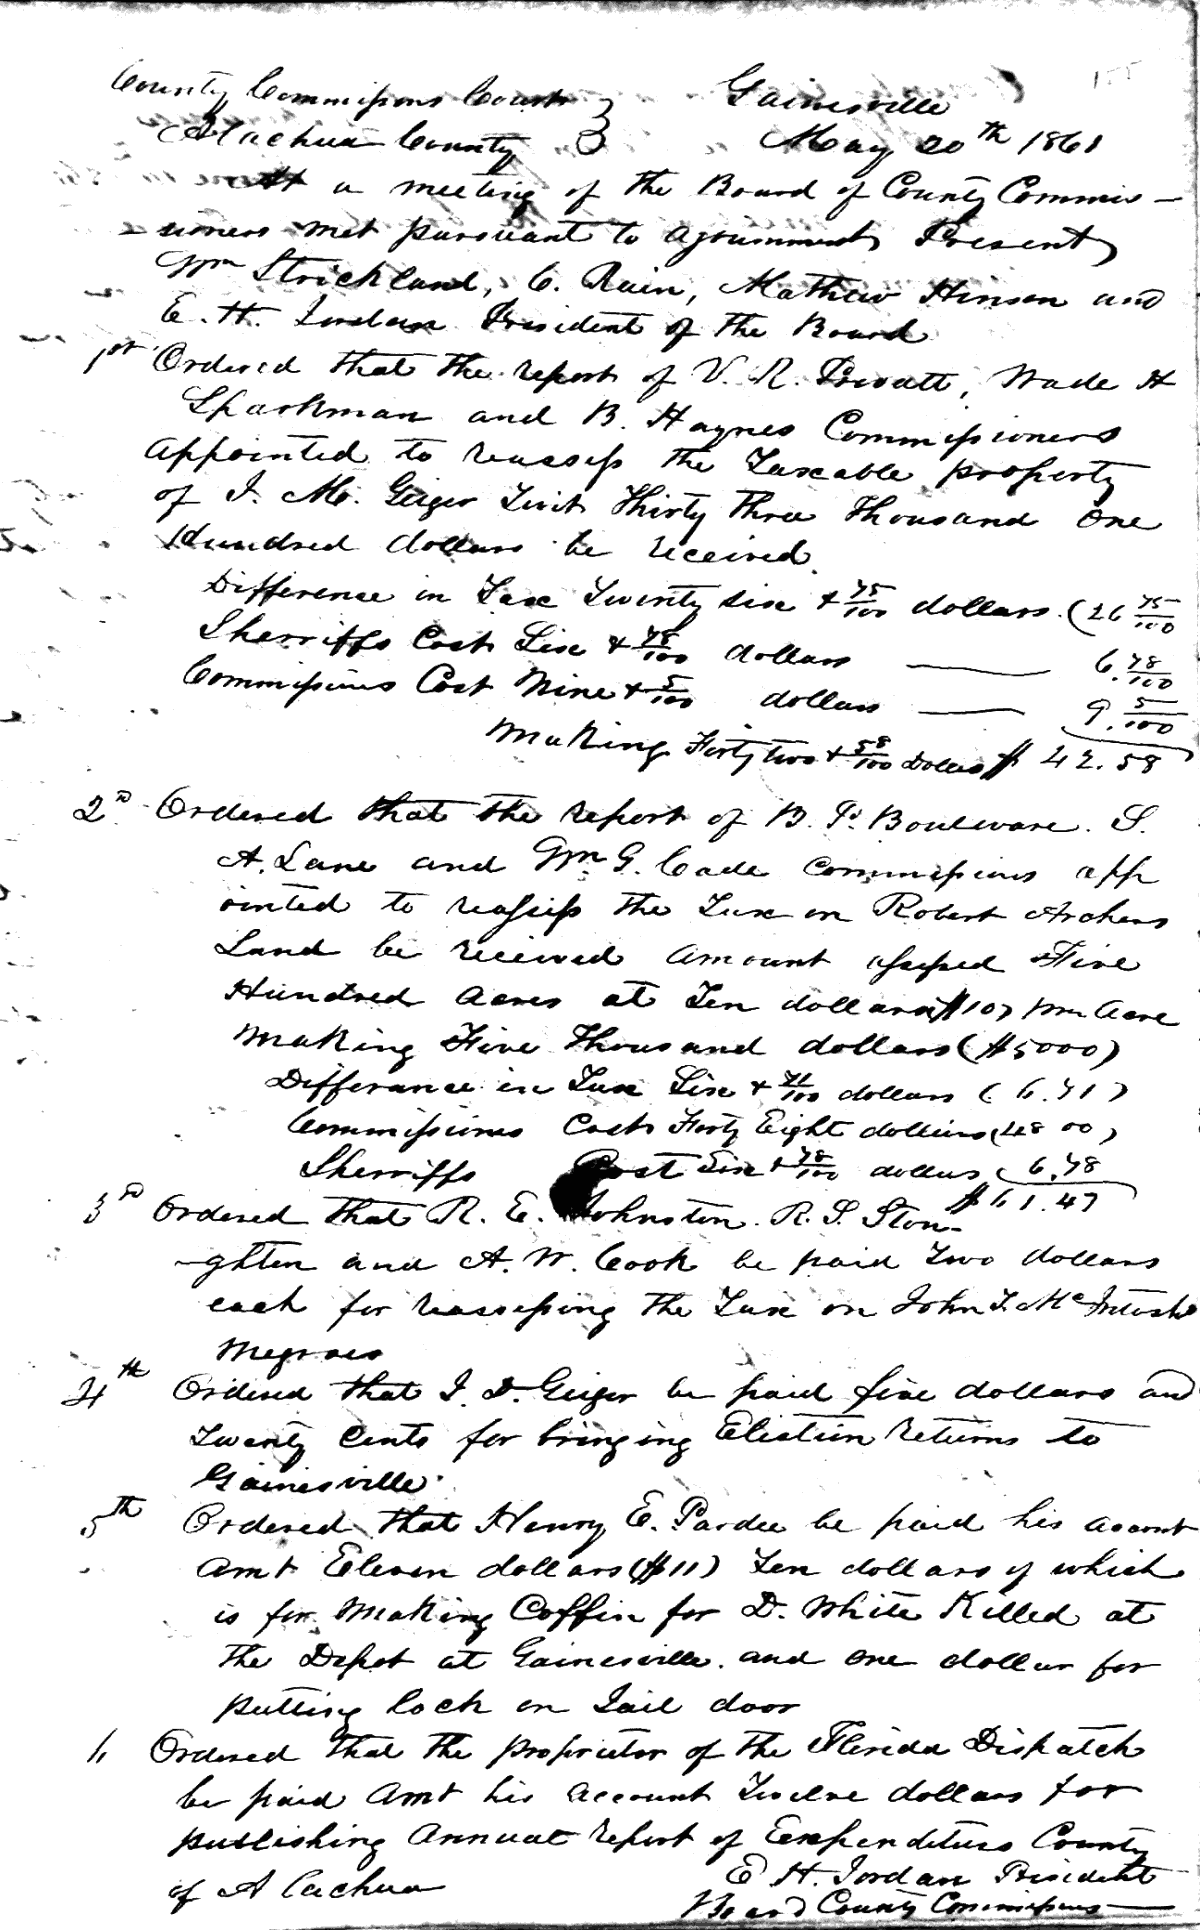 155
County Commissions Court } Gainesville
Alachua County } May 20th 1861
At a meeting of the Board of County Commis-
-sioners met pursuant to ajournment, Present,
Wm Strickland, C. Rain, Mathew Hinson and
E. H. Jordan President of the Board
1st Ordered that the report of V. R. Prevatt, Wade H
Sparkman and B. Haynes Commissioners
appointed to reassess the Taxable property
of J. M. Geiger Towit Thirty three Thousand One
Hundred dollars be received.
Difference in Tax Twenty six & 75/100 dollars. (26 75/100
Sherriffs Cost Six & 78/100 dollars — 6. 78/100
Commissions Cost Nine & 5/100 dollars — 9. 5/100
Making Forty two & 58/100 Dollars $ 42.58
2d Ordered that the report of B. P. Bouleware. S.
A. Lane and Wm G. Cade Commissions app
ointed to reassess the Tax on Robert Archers
Land be received amount assessed Five
Hundred acres at Ten dollars ($10) pr Acre
Making Five Thousand dollars ($5000)
Differance in Tax Six & 71/100 dollars (6.71)
Commissions Cost Forty Eight dollars (48 00)
Sherriffs Cost Six & 78/100 dollars (6.78
$61.47
3d Ordered that R. E. Johnston. R. S. Ston-
-ghten and A. W. Cook be paid Two dollars
each for reassessing the Tax on John T. McIntosh
Negroes
4th Ordered that J. D. Geiger be paid five dollars and
Twenty Cents for bringing Election Returns to
Gainesville.
5th Ordered that Henry E. Pardee be paid his acount
Amt Eleven dollars ($11) Ten dollars of which
is for Making Coffin for D. White Killed at
the Depot at Gainesville. and One dollar for
putting lock on Jail door
6 Ordered that the proprietor of the Florida Dispatch
be paid Amt his account Twelve dollars for
publishing Annual report of Expenditures County
of Alachua E H. Jordan President
Board County Commissions